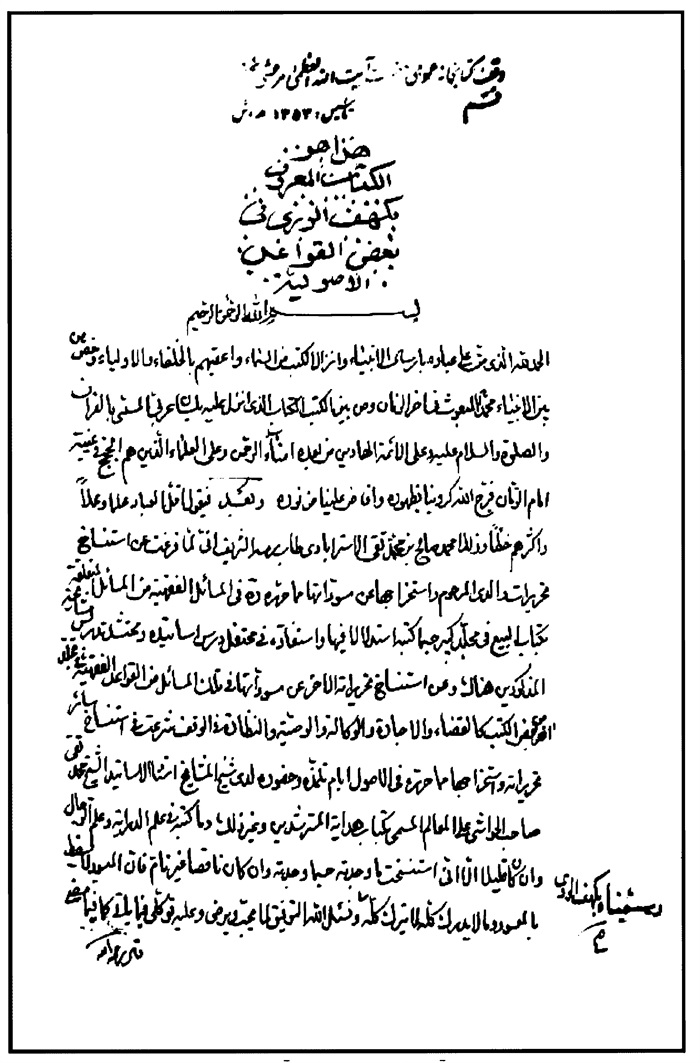 وقف كتابخانه عمومى آيت الله العظمى مرعشى
قم
تأسيس ١٣٥٣ هـ.ش
هذا هو
الكتاب المعروف
بكهف الورى فى
بعض القواعد
الاصولية
بسم الله الرحمن الرحيم
الحمد لله الذى منّ على عباده بارسال الانبياء وانزال الكتب من السماء واعقبهم بالخلفاء والاولياء وخص من
بين الانبياء محمد المبعوث فى اخر الزمان ومن بين الكتب الكتاب الذى انزل عليه بلسان عربى المسمى بالقرآن
والصلوة والسلام عليه وعلى الائمة الهادين من بعده امناء الرحمن وعلى العلماء الذين هم الحجج فى غيبة
امام الزمان فرج الله كروبنا بظهوره وافاض علينا من نوره وبعد فيقول اقل العباد علما وعملاً
واكثرهم خطأ وزللا محمد صالح بن محمد تقى الاسترابادى طاب رمسه الشريف انى لما فرغت عن استنساخ
تحريرات والدى المرحوم واستخراجها عن مسوداتها مما حرره فى المسائل الفقهية من المسائل المتعلقة
بكتاب البيع فى مجلد كبير حسبما كتبه استدلالا فيها واستفاده فى محفل درس اساتيده ومحضر تدريس مشايخه
المذكورين هناك وعن استنساخ تحريراته الاخر عن مسوداتها فى تلك المسائل من القواعد الفقهية فى مجلد
اخر وبعض الكتب كالقضاء والاجارة والوكالة والوصية والنظارة فى الوقف شرعت فى استنساخ سائر
تحريراته واستخراجها مما حرره فى الاصول ايام تلمذه وحضوره لدى شيخ المشايخ استاد الاساتيد الشيخ محمد تقى
صاحب الحواشى على المعالم المسمى بكتاب هداية المسترشدين وغير ذلك وما كتبه فى علم الدراية وعلم الرجال
وان كان قليلا الا انى استنسخت ما وجدته حسبما وجدته وان كان ناقصا غير تام فان الميسور لا يسقط
بالمعسور وما لا يدرك كله لا يترك كله ونسئل الله التوفيق لما يحب ويرضى وعليه توكلى فيما
وسميناه بكهف الورى